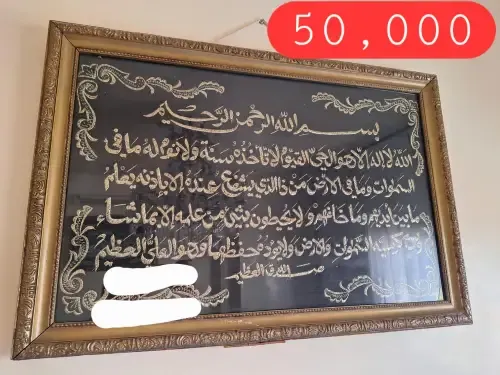 50,000
بسم الله الرحمن الرحيم
الله لا اله الا هو الحي القيوم لا تأخذه سنة ولا نوم له ما في
السموات وما في الارض من ذا الذي يشفع عنده الا باذنه يعلم
ما بين أيديهم وما خلفهم ولا يحيطون بشئ من علمه الا بما شاء
وسع كرسيه السموات والارض ولا يؤده حفظهما وهو العلي العظيم
صدق الله العظيم